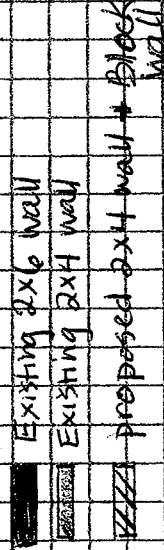 Existing 2x6 wall
Existing 2x4 wall
proposed 2x4 wall + Block
wall